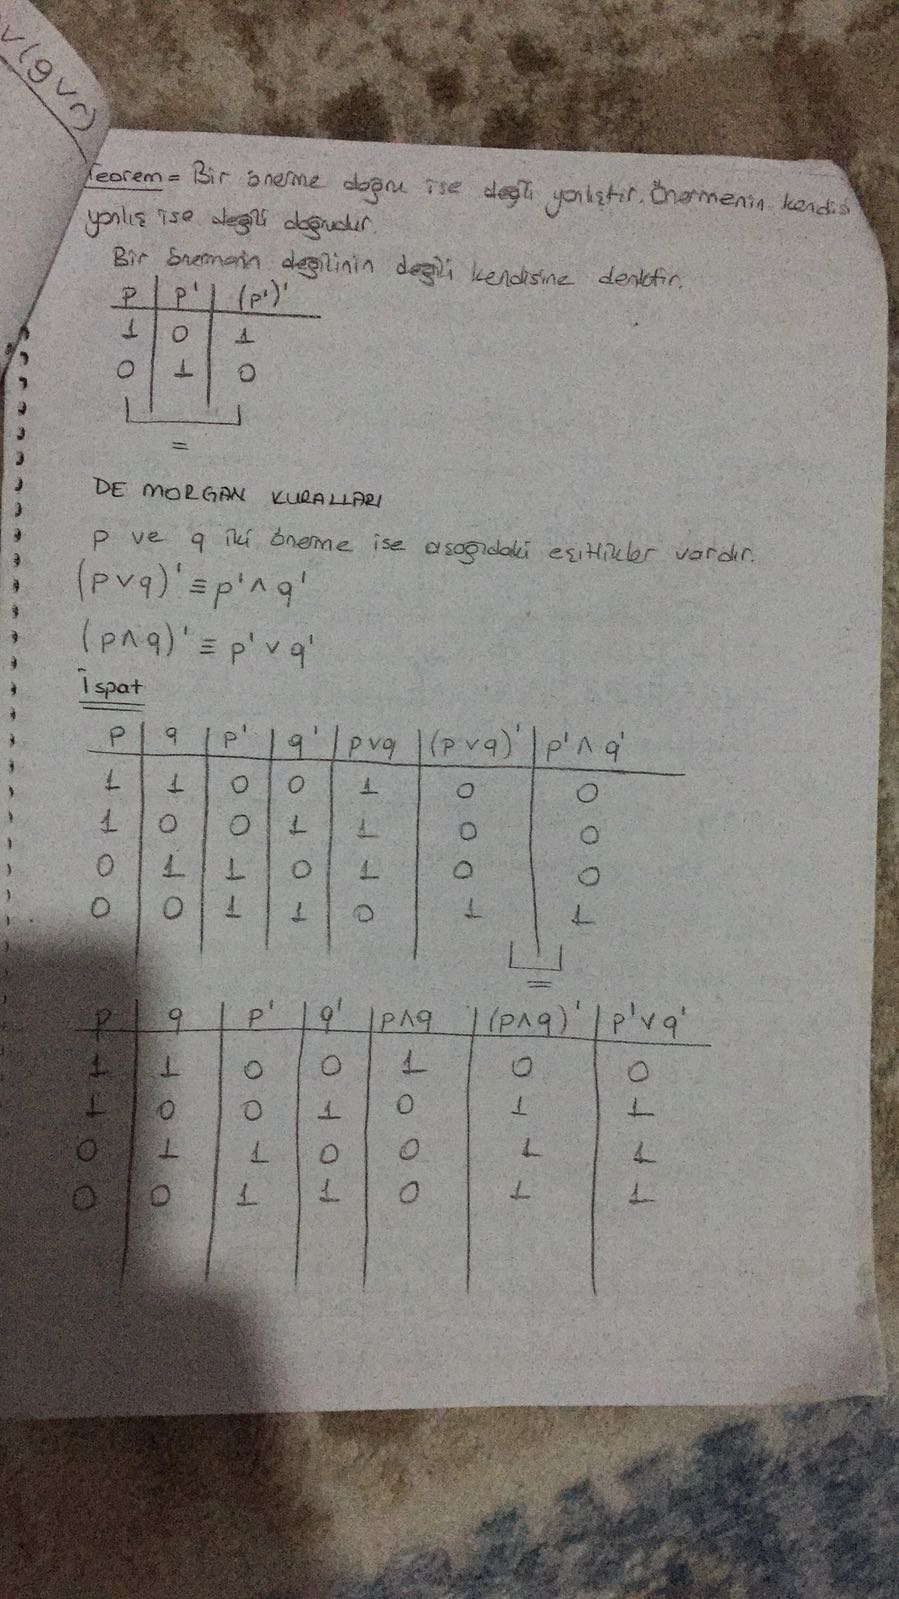 v(qvr)
Teorem = Bir önerme doğru ise değili yanlıştır. Önermenin kendisi
yanlış ise değili doğrudur.
Bir önermenin değilinin değili kendisine denktir.
p | p' | (p')'
1 | 0 | 1
0 | 1 | 0
=
DE MORGAN KURALLARI
p ve q iki önerme ise aşağıdaki eşitlikler vardır.
(p∨q)' ≡ p'∧q'
(p∧q)' ≡ p'∨q'
İspat
p | q | p' | q' | p∨q | (p∨q)' | p'∧q'
1 | 1 | 0 | 0 | 1 | 0 | 0
1 | 0 | 0 | 1 | 1 | 0 | 0
0 | 1 | 1 | 0 | 1 | 0 | 0
0 | 0 | 1 | 1 | 0 | 1 | 1
=
p | q | p' | q' | p∧q | (p∧q)' | p'∨q'
1 | 1 | 0 | 0 | 1 | 0 | 0
1 | 0 | 0 | 1 | 0 | 1 | 1
0 | 1 | 1 | 0 | 0 | 1 | 1
0 | 0 | 1 | 1 | 0 | 1 | 1